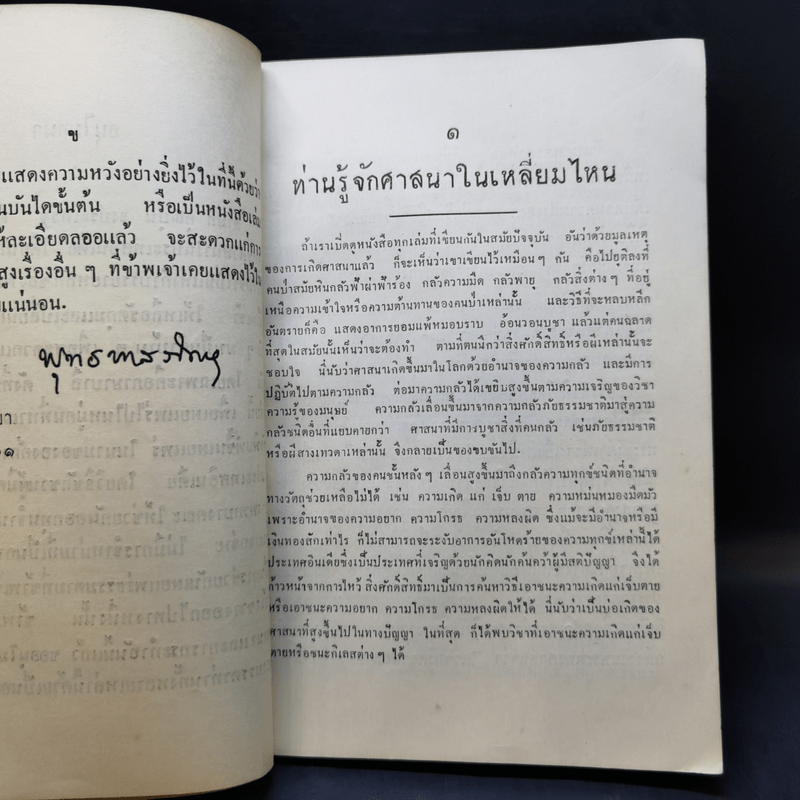 ขู
แสดงความหวังอย่างยิ่งไว้ในที่นี้ด้วยว่า
นบันไดขั้นต้น หรือเป็นหนังสือเล่ม
ห้ละเอียดลออแล้ว จะสะดวกแก่การ
สูงเรื่องอื่น ๆ ที่ข้าพเจ้าเคยแสดงไว้ใน
แน่นอน.
พุทธทาสภิกขุ
๑
ท่านรู้จักศาสนาในเหลี่ยมไหน
ถ้าเราเปิดดูหนังสือทุกเล่มที่เขียนกันในสมัยปัจจุบัน อันว่าด้วยมูลเหตุ
ของการเกิดศาสนาแล้ว ก็จะเห็นว่าเขาเขียนไว้เหมือนๆ กัน คือไปยุติลงที่
คนป่าสมัยหินกลัวฟ้าผ่าฟ้าร้อง กลัวความมืด กลัวพายุ กลัวสิ่งต่างๆ ที่อยู่
เหนือความเข้าใจหรือความต้านทานของคนป่าเหล่านั้น และวิธีที่จะหลบหลีก
อันตรายก็คือ แสดงอาการยอมแพ้หมอบราบ อ้อนวอนบูชา แล้วแต่คนฉลาด
ที่สุดในสมัยนั้นเห็นว่าจะต้องทำ ตามที่ตนนึกว่าสิ่งศักดิ์สิทธิ์หรือผีเหล่านั้นจะ
ชอบใจ นี่นับว่าศาสนาเกิดขึ้นมาในโลกด้วยอำนาจของความกลัว และมีการ
ปฏิบัติไปตามความกลัว ต่อมาความกลัวได้เขยิบสูงขึ้นตามความเจริญของวิชา
ความรู้ของมนุษย์ ความกลัวเลื่อนขึ้นมาจากความกลัวภัยธรรมชาติมาสู่ความ
กลัวชนิดอื่นที่แยบคายกว่า ศาสนาที่มีการบูชาสิ่งที่คนกลัว เช่นภัยธรรมชาติ
หรือผีสางเทวดาเหล่านั้น จึงกลายเป็นของขบขันไป.
ความกลัวของคนชั้นหลังๆ เลื่อนสูงขึ้นมาถึงกลัวความทุกข์ชนิดที่อำนาจ
ทางวัตถุช่วยเหลือไม่ได้ เช่น ความเกิด แก่ เจ็บ ตาย ความหม่นหมองมืดมัว
เพราะอำนาจของความอยาก ความโกรธ ความหลงผิด ซึ่งแม้จะมีอำนาจหรือมี
เงินทองสักเท่าไร ก็ไม่สามารถจะระงับอาการอันโหดร้ายของความทุกข์เหล่านี้ได้
ประเทศอินเดียซึ่งเป็นประเทศที่เจริญด้วยนักคิดนักค้นคว้าผู้มีสติปัญญา จึงได้
ก้าวหน้าจากการไหว้สิ่งศักดิ์สิทธิ์มาเป็นการค้นหาวิธีเอาชนะความเกิดแก่เจ็บตาย
หรือเอาชนะความอยาก ความโกรธ ความหลงผิดให้ได้ นี่นับว่าเป็นบ่อเกิดของ
ศาสนาที่สูงขึ้นไปในทางปัญญา ในที่สุด ก็ได้พบวิชาที่เอาชนะความเกิดแก่เจ็บ
ตายหรือชนะกิเลสต่างๆ ได้